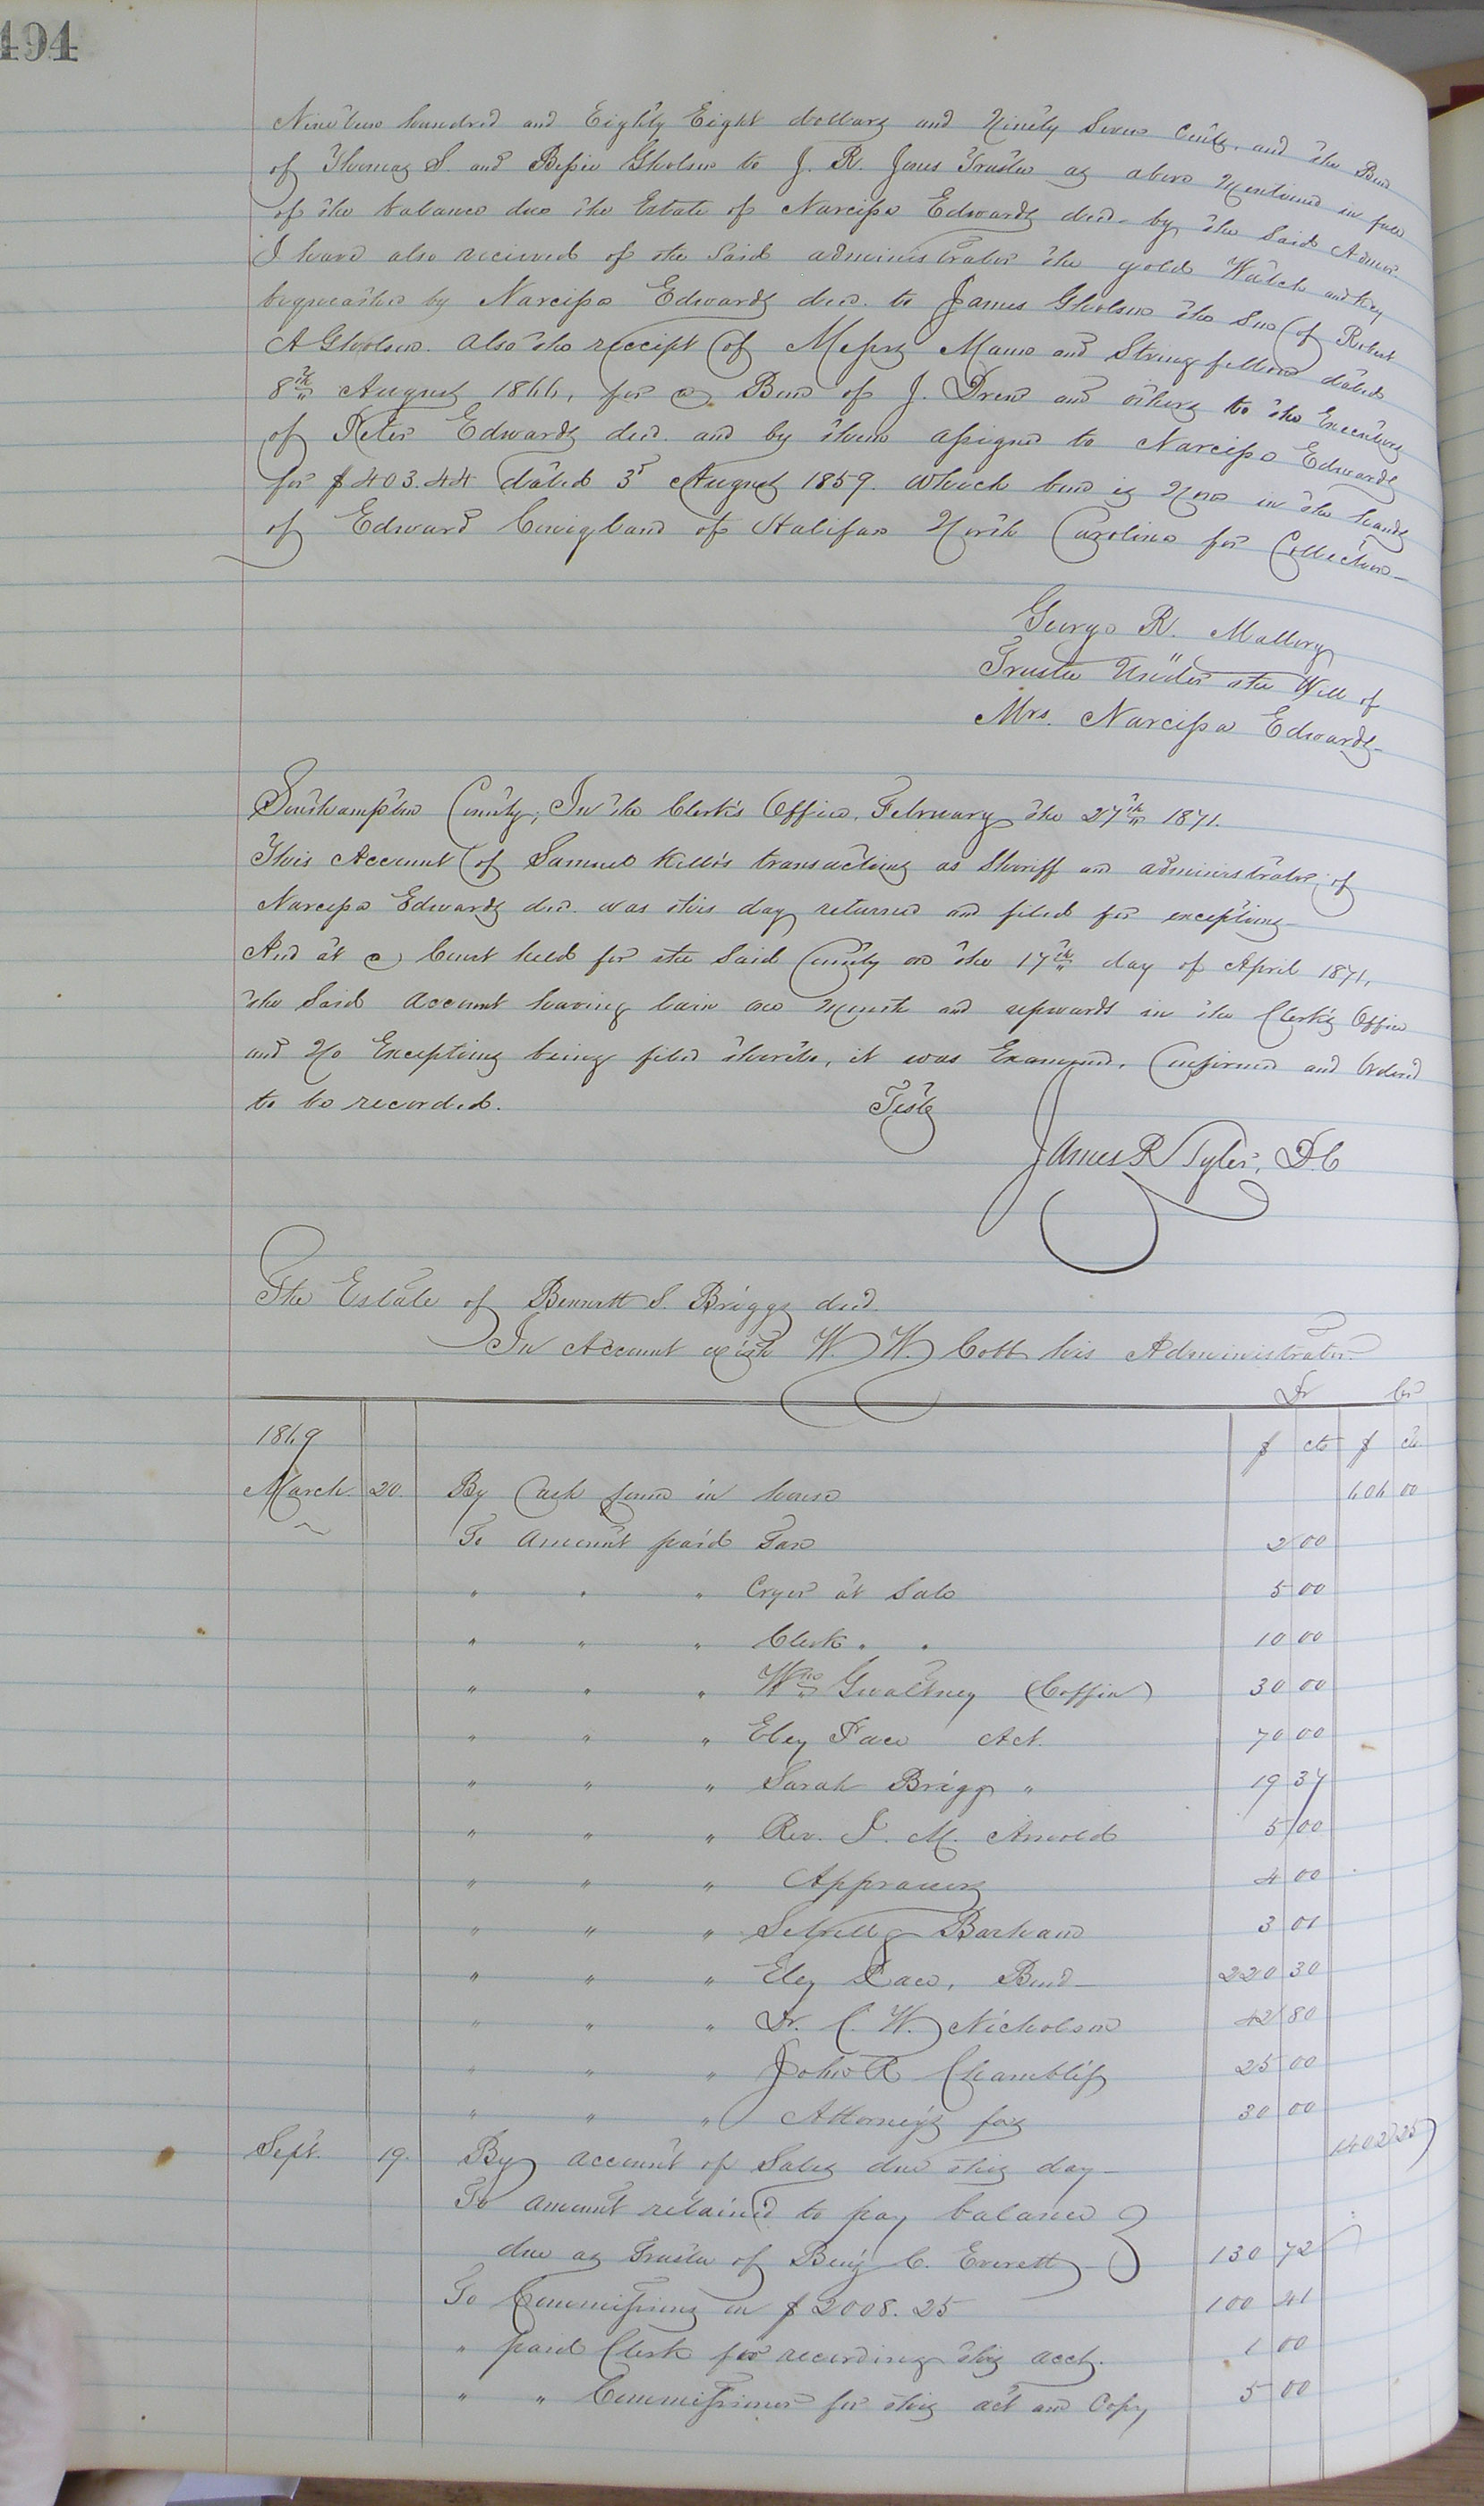 494
Nineteen hundred and Eighty Eight dollars and Ninety Seven Cents, and the Bond
of Thomas S. and Bessie Gholson to J. R. Jones Trustee as above Mentioned in full
of the balance due the Estate of Narcissa Edwards decd. by the said Admor.
I have also received of the said administrator the gold Watch and Key
bequeathed by Narcissa Edwards decd. to James Gholson the Son of Robert
A Gholson. Also the receipt of Messrs Mann and Stringfellow dated
8th August 1866, for a Bond of J. Drew and others to the Executors
of Peter Edwards decd. and by them assigned to Narcissa Edwards
for $403.44 dated 3d August 1859. which bond is Now in the hands
of Edward Conigland of Halifax North Carolina for Collection—
George R. Mallory
Trustee Under the Will of
Mrs. Narcissa Edwards
Southampton County; In the Clerk's Office, February the 27th 1871.
This Account of Samuel Kello's transactions as Sheriff and administrator of
Narcissa Edwards decd. was this day returned and filed for exceptions—
And at a Court held for the said County on the 17th day of April 1871,
the said account having lain one Month and upwards in the Clerk's Office
and No Exceptions being filed thereto, it was Examined, Confirmed and Ordered
to be recorded. Teste
James R Tyler, D.C
The Estate of Bennett S. Briggs decd.
In Account with W. W. Cobb his Administrator.
Dr Cr
1869 $ cts $ cts
March 20. By Cash found in house 606 00
To Amount paid Tax 2 00
" " " Cryer at Sale 5 00
" " " Clerk " " 10 00
" " " Wm Gwaltney (Coffin) 30 00
" " " Eley Pace Act. 70 00
" " " Sarah Briggs " 19 37
" " " Rev. J. M. Arnold 5 00
" " " Appraisers 4 00
" " " Barham 3 01
" " " Eley Pace, Bond 220 30
" " " Dr. C. W. Nicholson 42 80
" " " John R Chambliss 25 00
" " " Attorney's fees 30 00
Sept. 19. By account of Sales due this day 1402 25
To amount retained to pay balance
due as Trustee of Benj C. Everett 130 72
To Commissions on $2008.25 100 41
" paid Clerk for recording this acct. 1 00
" " Commissioner for this act and Copy 5 00